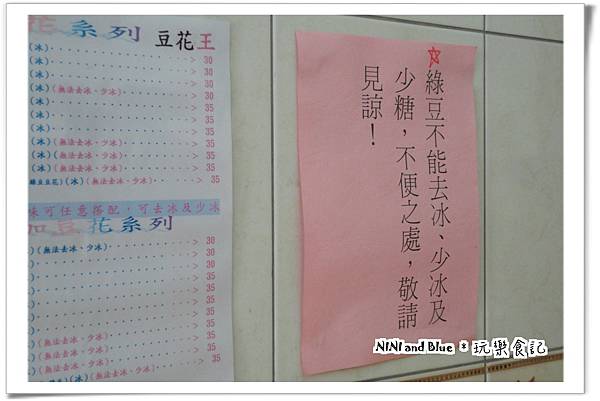 花系列 豆花王
(冰) > 30
(冰) > 30
(冰) > 30
(冰)(無法去冰、少冰) > 30
(冰) > 35
(冰) > 35
(冰) > 35
(冰)(無法去冰、少冰) > 35
(冰)(無法去冰、少冰) > 35
(冰)(無法去冰、少冰) > 35
綠豆豆花)(冰)(無法去冰、少冰) > 35
味可任意搭配，可去冰及少冰
加豆花系列
(無法去冰、少冰) > 30
> 30
> 30
> 35
> 35
> 35
> 35
(無法去冰、少冰) > 35
(無法去冰、少冰) > 35
(無法去冰、少冰) > 35
(無法去冰、少冰)
☆綠豆不能去冰、少冰及
少糖，不便之處，敬請
見諒！
NINI and Blue * 玩樂食記